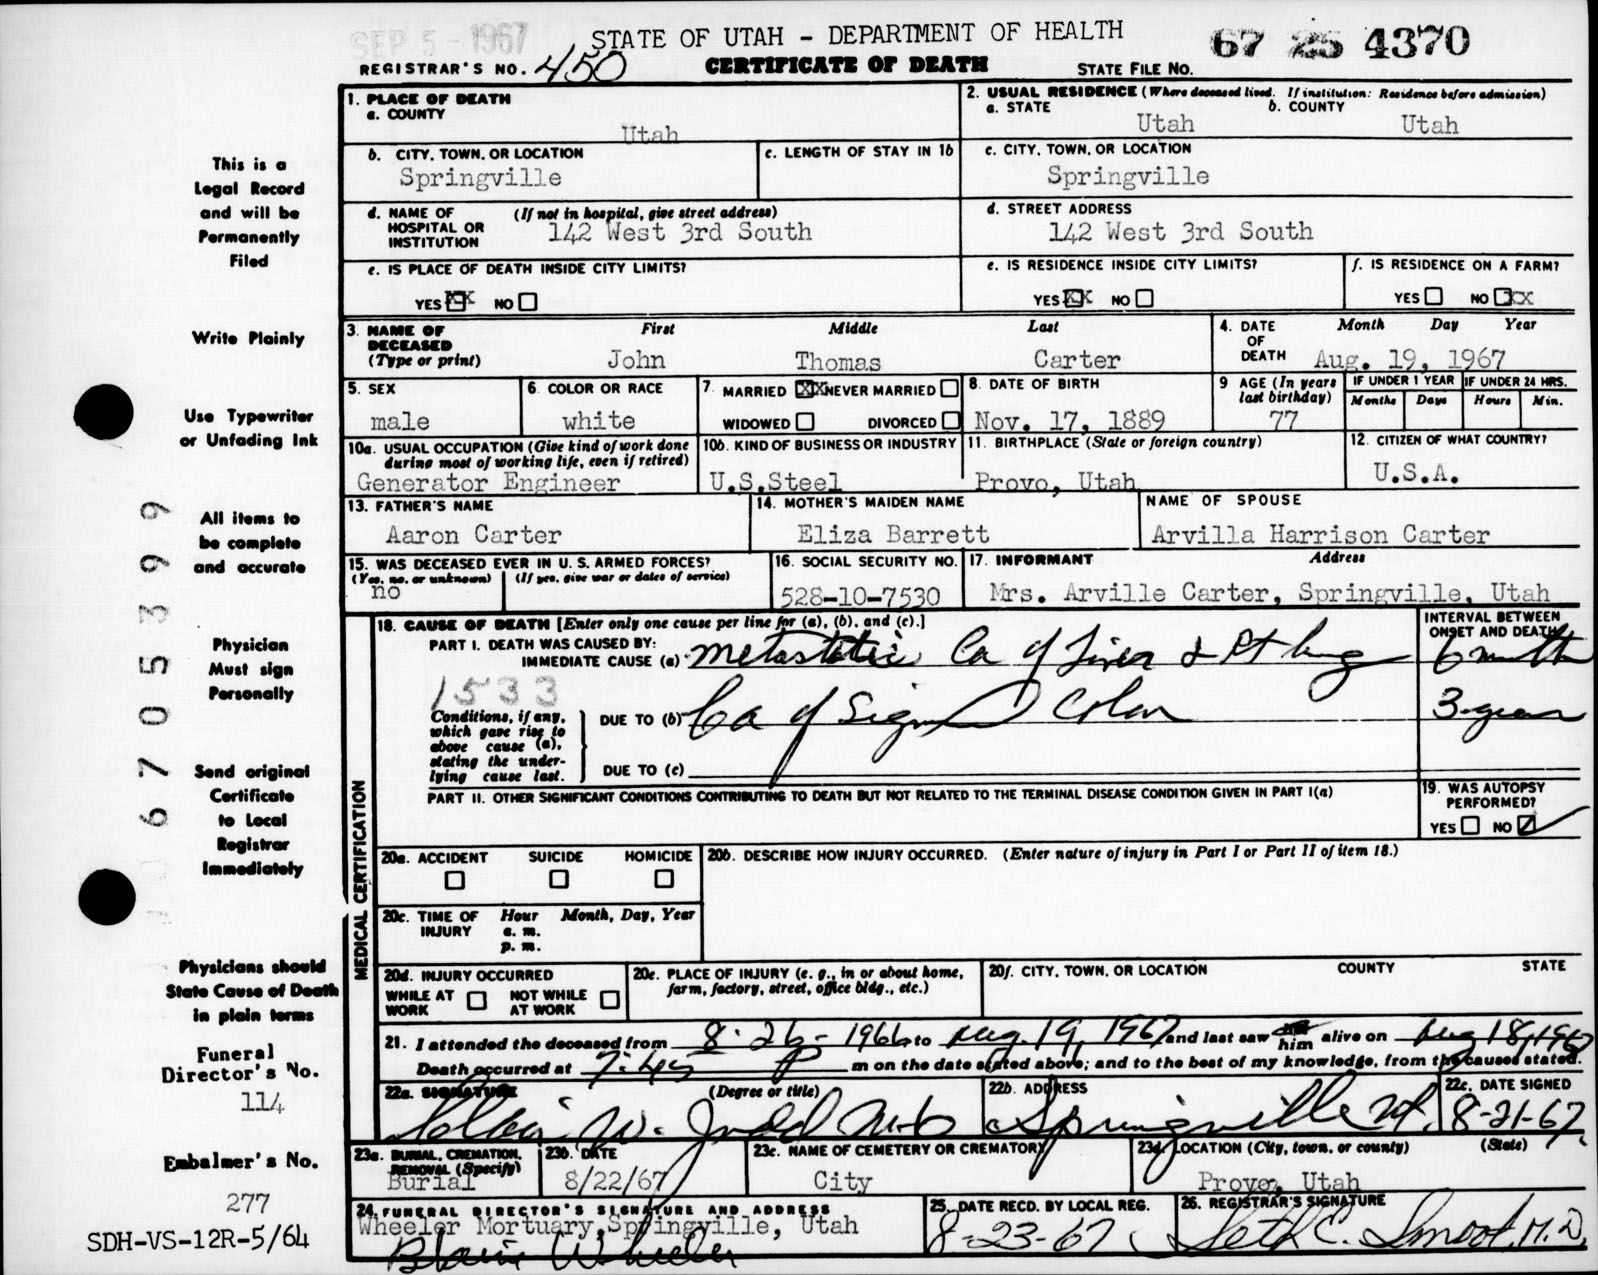 SEP 5 - 1967
STATE OF UTAH - DEPARTMENT OF HEALTH
67 25 4370
REGISTRAR'S NO. 450
CERTIFICATE OF DEATH
STATE FILE NO.
1. PLACE OF DEATH
a. COUNTY
Utah
2. USUAL RESIDENCE (Where deceased lived. If institution: Residence before admission)
a. STATE
b. COUNTY
Utah
Utah
b. CITY, TOWN, OR LOCATION
Springville
c. LENGTH OF STAY IN 1b
c. CITY, TOWN, OR LOCATION
Springville
d. NAME OF HOSPITAL OR INSTITUTION
(If not in hospital, give street address)
142 West 3rd South
d. STREET ADDRESS
142 West 3rd South
e. IS PLACE OF DEATH INSIDE CITY LIMITS?
YES XX NO
e. IS RESIDENCE INSIDE CITY LIMITS?
YES XX NO
f. IS RESIDENCE ON A FARM?
YES NO XX
3. NAME OF DECEASED
(Type or print)
First Middle Last
John Thomas Carter
4. DATE OF DEATH
Month Day Year
Aug. 19, 1967
5. SEX
male
6. COLOR OR RACE
white
7. MARRIED XX NEVER MARRIED
WIDOWED DIVORCED
8. DATE OF BIRTH
Nov. 17, 1889
9 AGE (In years last birthday)
77
IF UNDER 1 YEAR
Months Days
IF UNDER 24 HRS.
Hours Min.
10a. USUAL OCCUPATION (Give kind of work done during most of working life, even if retired)
Generator Engineer
10b. KIND OF BUSINESS OR INDUSTRY
U.S.Steel
11. BIRTHPLACE (State or foreign country)
Provo, Utah
12. CITIZEN OF WHAT COUNTRY?
U.S.A.
13. FATHER'S NAME
Aaron Carter
14. MOTHER'S MAIDEN NAME
Eliza Barrett
NAME OF SPOUSE
Arvilla Harrison Carter
15. WAS DECEASED EVER IN U. S. ARMED FORCES?
(Yes, no, or unknown) (If yes, give war or dates of service)
no
16. SOCIAL SECURITY NO.
528-10-7530
17. INFORMANT
Address
Mrs. Arville Carter, Springville, Utah
18. CAUSE OF DEATH [Enter only one cause per line for (a), (b), and (c).]
PART I. DEATH WAS CAUSED BY:
IMMEDIATE CAUSE (a) Metastatic Ca of Liver & Rt lung
INTERVAL BETWEEN ONSET AND DEATH
6 month
1533
Conditions, if any, which gave rise to above cause (a), stating the underlying cause last.
DUE TO (b) Ca of Sigmoid Colon
3-years
DUE TO (c)
PART II. OTHER SIGNIFICANT CONDITIONS CONTRIBUTING TO DEATH BUT NOT RELATED TO THE TERMINAL DISEASE CONDITION GIVEN IN PART I(a)
19. WAS AUTOPSY PERFORMED?
YES NO
MEDICAL CERTIFICATION
20a. ACCIDENT SUICIDE HOMICIDE
20b. DESCRIBE HOW INJURY OCCURRED. (Enter nature of injury in Part I or Part II of item 18.)
20c. TIME OF INJURY
Hour Month, Day, Year
a. m.
p. m.
20d. INJURY OCCURRED
WHILE AT WORK NOT WHILE AT WORK
20e. PLACE OF INJURY (e. g., in or about home, farm, factory, street, office bldg., etc.)
20f. CITY, TOWN, OR LOCATION COUNTY STATE
21. I attended the deceased from 8-26-1966 to Aug. 19, 1967 and last saw him alive on Aug 18, 1967
Death occurred at 7:45 P m on the date stated above; and to the best of my knowledge, from the causes stated.
22a. SIGNATURE (Degree or title)
W. Judd M.D
22b. ADDRESS
Springville Ut.
22c. DATE SIGNED
8-21-67
23a. BURIAL, CREMATION, REMOVAL (Specify)
Burial
23b. DATE
8/22/67
23c. NAME OF CEMETERY OR CREMATORY
City
23d. LOCATION (City, town, or county) (State)
Provo, Utah
24. FUNERAL DIRECTOR'S SIGNATURE AND ADDRESS
Wheeler Mortuary, Springville, Utah
Blair Wheeler
25. DATE RECD. BY LOCAL REG.
8-23-67
26. REGISTRAR'S SIGNATURE
Seth C. Smoot, M.D.
This is a
Legal Record
and will be
Permanently
Filed
Write Plainly
Use Typewriter
or Unfading Ink
All items to
be complete
and accurate
Physician
Must sign
Personally
Send original
Certificate
to Local
Registrar
Immediately
Physicians should
State Cause of Death
in plain terms
Funeral
Director's No.
114
Embalmer's No.
277
SDH-VS-12R-5/64
6705399